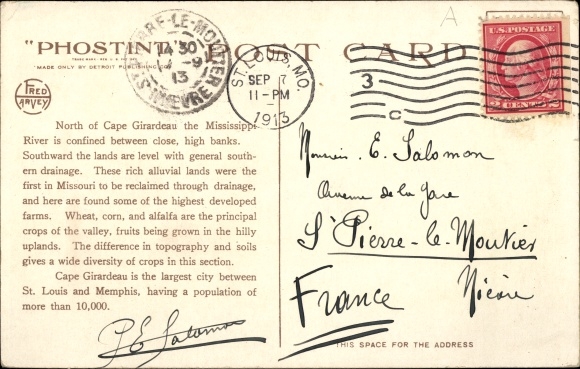 A
"PHOSTINT" POST CARD
"MADE ONLY BY DETROIT PUBLISHING CO.
FRED HARVEY
14 30
9
13
NIÈVRE
ST. LOUIS, MO.
SEP 7
11-PM
1913
3
C
U.S. POSTAGE
2 CENTS 2
North of Cape Girardeau the Mississippi
River is confined between close, high banks.
Southward the lands are level with general south-
ern drainage. These rich alluvial lands were the
first in Missouri to be reclaimed through drainage,
and here are found some of the highest developed
farms. Wheat, corn, and alfalfa are the principal
crops of the valley, fruits being grown in the hilly
uplands. The difference in topography and soils
gives a wide diversity of crops in this section.
Cape Girardeau is the largest city between
St. Louis and Memphis, having a population of
more than 10,000.
P E Salomon
Monsieur. E. Salomon
Avenue de la Gare
St Pierre-le-Moutier
Nièvre
France
THIS SPACE FOR THE ADDRESS